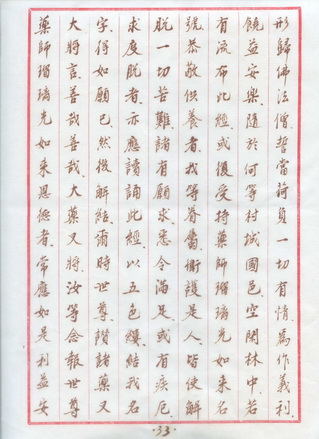 形歸佛法僧誓當荷負一切有情為作義利
饒益安樂隨於何等村城國邑空閑林中若
有流布此經或復受持藥師瑠璃光如來名
號恭敬供養者我等眷屬衛護是人皆使解
脫一切苦難諸有願求悉令滿足或有疾厄
求度脫者亦應讀誦此經以五色縷結我名
字得如願已然後解結爾時世尊讚諸藥叉
大將言善哉善哉大藥叉將汝等念報世尊
藥師瑠璃光如來恩德者常應如是利益安
·33·